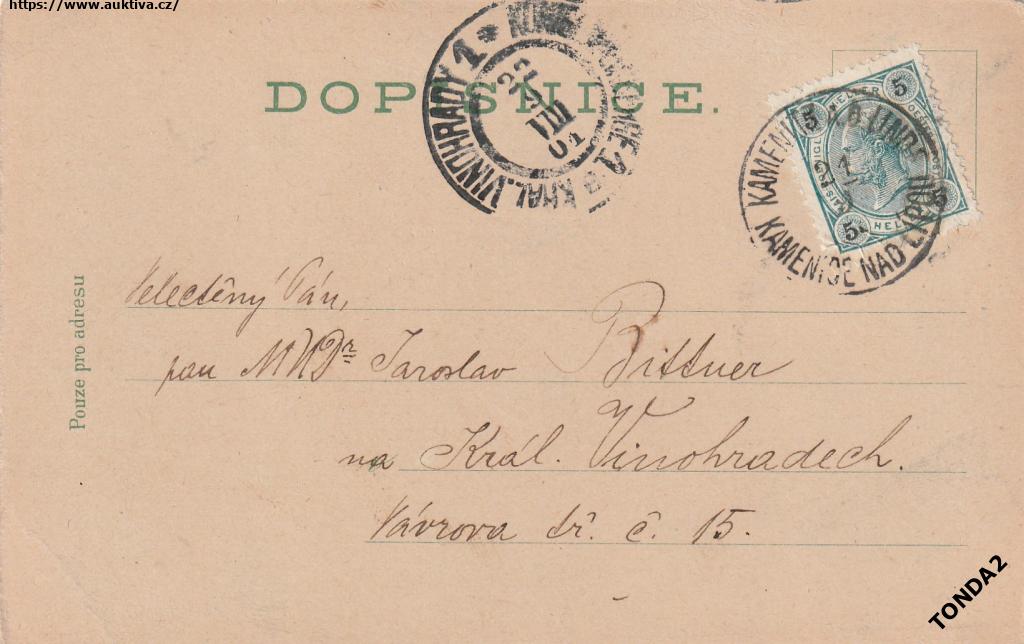 https://www.auktiva.cz/
DOPISNICE.
KRÁL. VINOHRADY 1
5 HELLER 5
5 HELLER 5
KAMENITZ A.D. LINDE
KAMENICE NAD LIPOU
Pouze pro adresu
Velectěný Pán,
pan MUDr Jaroslav Bittner
na Král. Vinohradech.
Vávrova tř. č. 15.
TONDA2